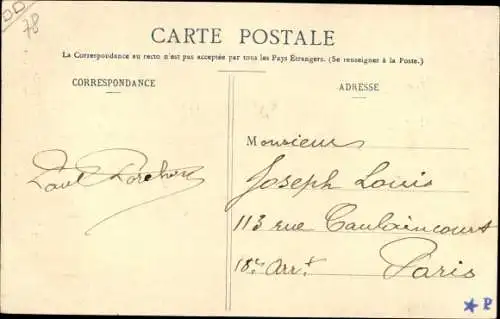 78
CARTE POSTALE
La Correspondance au recto n'est pas acceptée par tous les Pays Étrangers. (Se renseigner à la Poste.)
CORRESPONDANCE
ADRESSE
Paul
Monsieur
Joseph Louis
113 rue Caulaincourt
18e Arrt
Paris
P